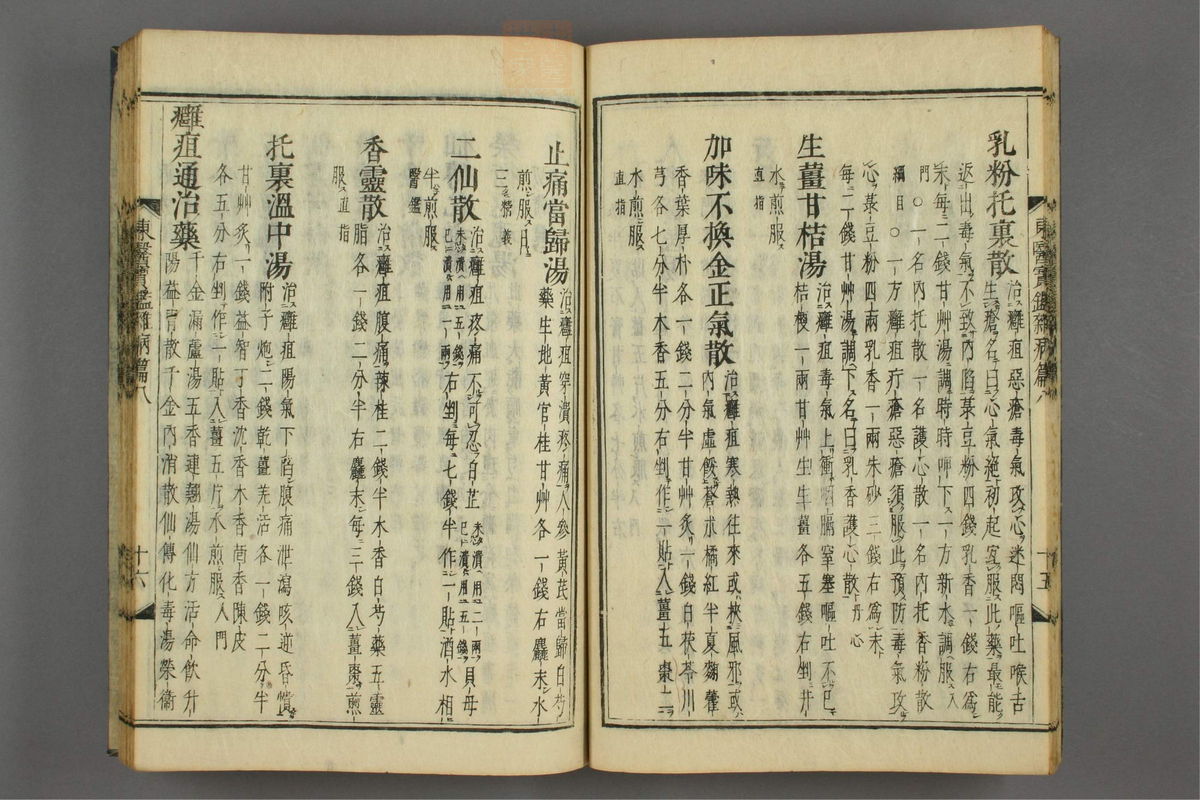 乳粉托裏散治癰疽惡瘡毒氣攻心迷悶嘔吐喉舌
生瘡名曰心氣絶初起宜服此藥最能
返出毒氣不致內陷菉豆粉四錢乳香一錢右爲
末每二錢甘艸湯調時時呷下一方新水調服入
門○一名內托散一名護心散一名內托香粉散
綱目○一方癰疽疔瘡惡瘡須服此預防毒氣攻
心菉豆粉四兩乳香一兩朱砂三錢右爲末
每二錢甘艸湯調下名曰乳香護心散丹心
生薑甘桔湯治癰疽毒氣上衝咽膈窒塞嘔吐不已
桔梗一兩甘艸生生薑各五錢右剉井
水煎服
直指
加味不換金正氣散治癰疽寒熱往來或挾風邪或
內氣虛餒蒼朮橘紅半夏麴藿
香葉厚朴各一錢二分半甘艸炙一錢白茯苓川
芎各七分半木香五分右剉作一貼入薑五棗二
水煎服
直指
東醫寶鑑雜病篇
十五
止痛當歸湯治癰疽穿潰疼痛人參黃芪當歸白芍
藥生地黃官桂甘艸各一錢右麤末水
煎服日
三精義
二仙散治癰疽疼痛不可忍白芷未潰用一兩已潰用五錢貝母
未潰用五錢已潰用一兩右剉每七錢半作一貼酒水相
半煎服
醫鑑
香靈散治癰疽腹痛辣桂二錢半木香白芍藥五靈
脂各一錢二分半右麤末每三錢入薑棗煎
服直指
托裏溫中湯治癰疽陽氣下陷腹痛泄瀉咳逆昏憒
附子炮二錢乾薑羌活各一錢二分半
甘艸炙一錢益智丁香沈香木香茴香陳皮
各五分右剉作一貼入薑五片水煎服入門
癰疽通治藥千金漏蘆湯五香連翹湯仙方活命飮升
陽益胃散千金內消散仙傳化毒湯榮衛
東醫寶鑑雜病篇八
十六